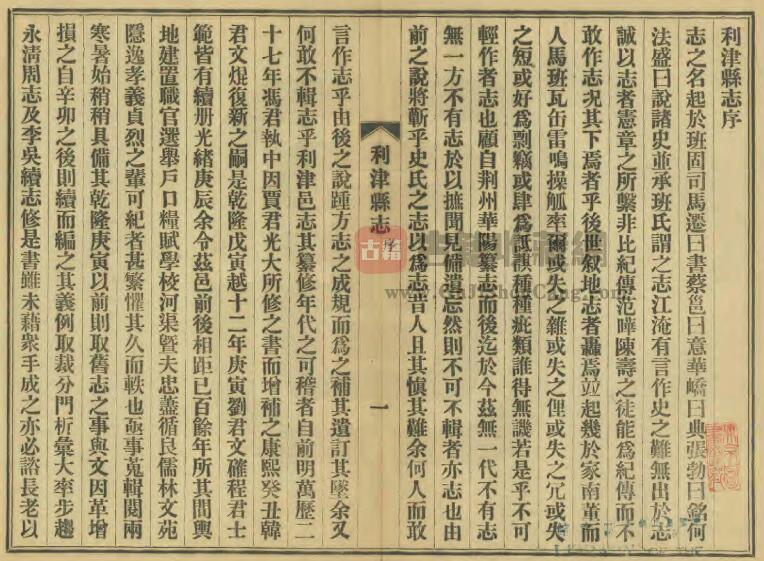 利津縣志序
志之名起於班固司馬遷曰書蔡邕曰意華嶠曰典張勃曰銘何
法盛曰說諸史並承班氏謂之志江淹有言作史之難無出於志
誠以志者憲章之所繫非比紀傳范曄陳壽之徒能爲紀傳而不
敢作志况其下焉者乎後世叙地志者轟焉竝起幾於家南董而
人馬班瓦缶雷鳴操觚率爾或失之雜或失之俚或失之冗或失
之短或好爲剽竊或肆爲詆諆種種疵類誰得無譏若是乎不可
輕作者志也顧自荆州華陽纂志而後迄於今茲無一代不有志
無一方不有志於以摭聞見備遺忘然則不可不輯者亦志也由
前之說將蘄乎史氏之志以爲志昔人且其愼其難余何人而敢
利津縣志
序
一
言作志乎由後之說踵方志之成規而爲之補其遺訂其墜余又
何敢不輯志乎利津邑志其纂修年代之可稽者自前明萬歷二
十七年馮君執中因賈君光大所修之書而增補之康熙癸丑韓
君文焜復新之嗣是乾隆戊寅越十二年庚寅劉君文確程君士
範皆有續册光緒庚辰余令茲邑前後相距已百餘年所其間輿
地建置職官選舉戶口糧賦學校河渠曁夫忠藎循良儒林文苑
隱逸孝義貞烈之輩可紀者甚繁懼其久而軼也亟事蒐輯閱兩
寒暑始稍稍具備其乾隆庚寅以前則取舊志之事與文因革增
損之自辛卯之後則續而編之其義例取裁分門析彙大率步趨
永清周志及李吳續志修是書雖未藉衆手成之亦必諮長老以
古籍